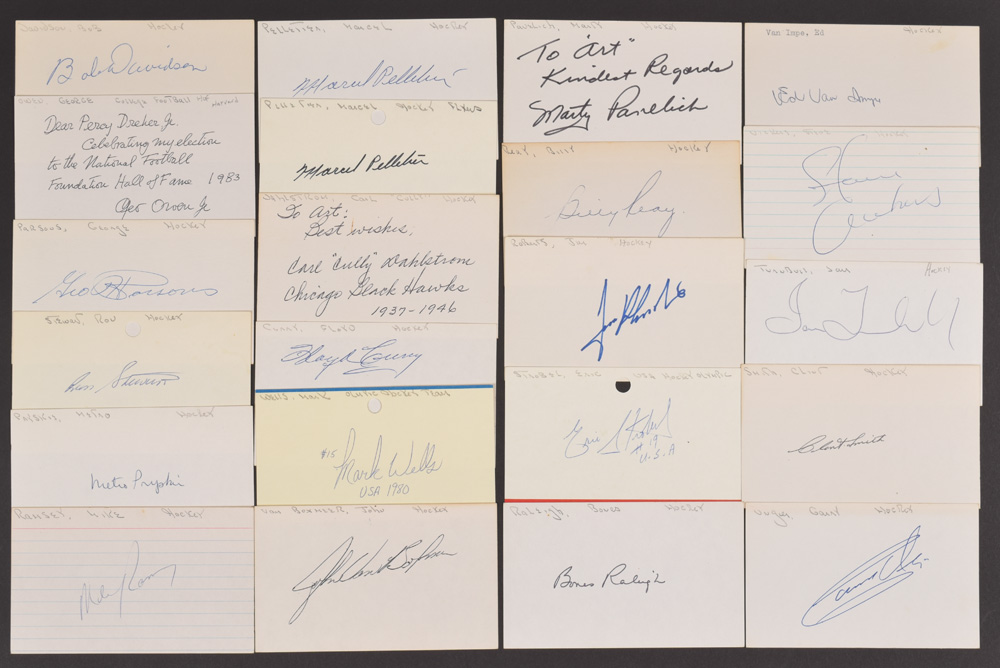 Davidson, Bob Hockey
Bob Davidson
George College Football HOF Harvard
Dear Percy Dreher Jr.
Celebrating my election
to the National Football
Foundation Hall of Fame 1983
Geo Owen Jr
Parsons, George Hockey
Geo Parsons
Stewart, Ron Hockey
Ron Stewart
Prystai, Metro Hockey
Metro Prystai
Ramsey, Mike Hockey
Mike Ramsey
Pelletier, Marcel Hockey
Marcel Pelletier
Pelletier, Marcel Hockey Flyers
Marcel Pelletier
Wahlstrom, Carl "Cully" Hockey
To Art:
Best wishes,
Carl "Cully" Dahlstrom
Chicago Black Hawks
1937-1946
Curry, Floyd Hockey
Floyd Curry
Wells, Mark Hockey
#15 Mark Wells
USA 1980
Van Boxmeer, John Hockey
John Van Boxmeer
Hockey
To "Art"
Kindest Regards
Marty Pavelich
Reay, Billy Hockey
Billy Reay.
Roberts, Jim Hockey
Jim Roberts 6
Strobel, Eric USA Hockey Olympic
Eric Strobel
#19
U.S.A
Raleigh, Bones Hockey
Bones Raleigh
Van Impe, Ed Hockey
Ed Van Impe
Hockey
Turnbull, Ian Hockey
Ian Turnbull
Smith, Clint Hockey
Clint Smith
Unger, Garry Hockey